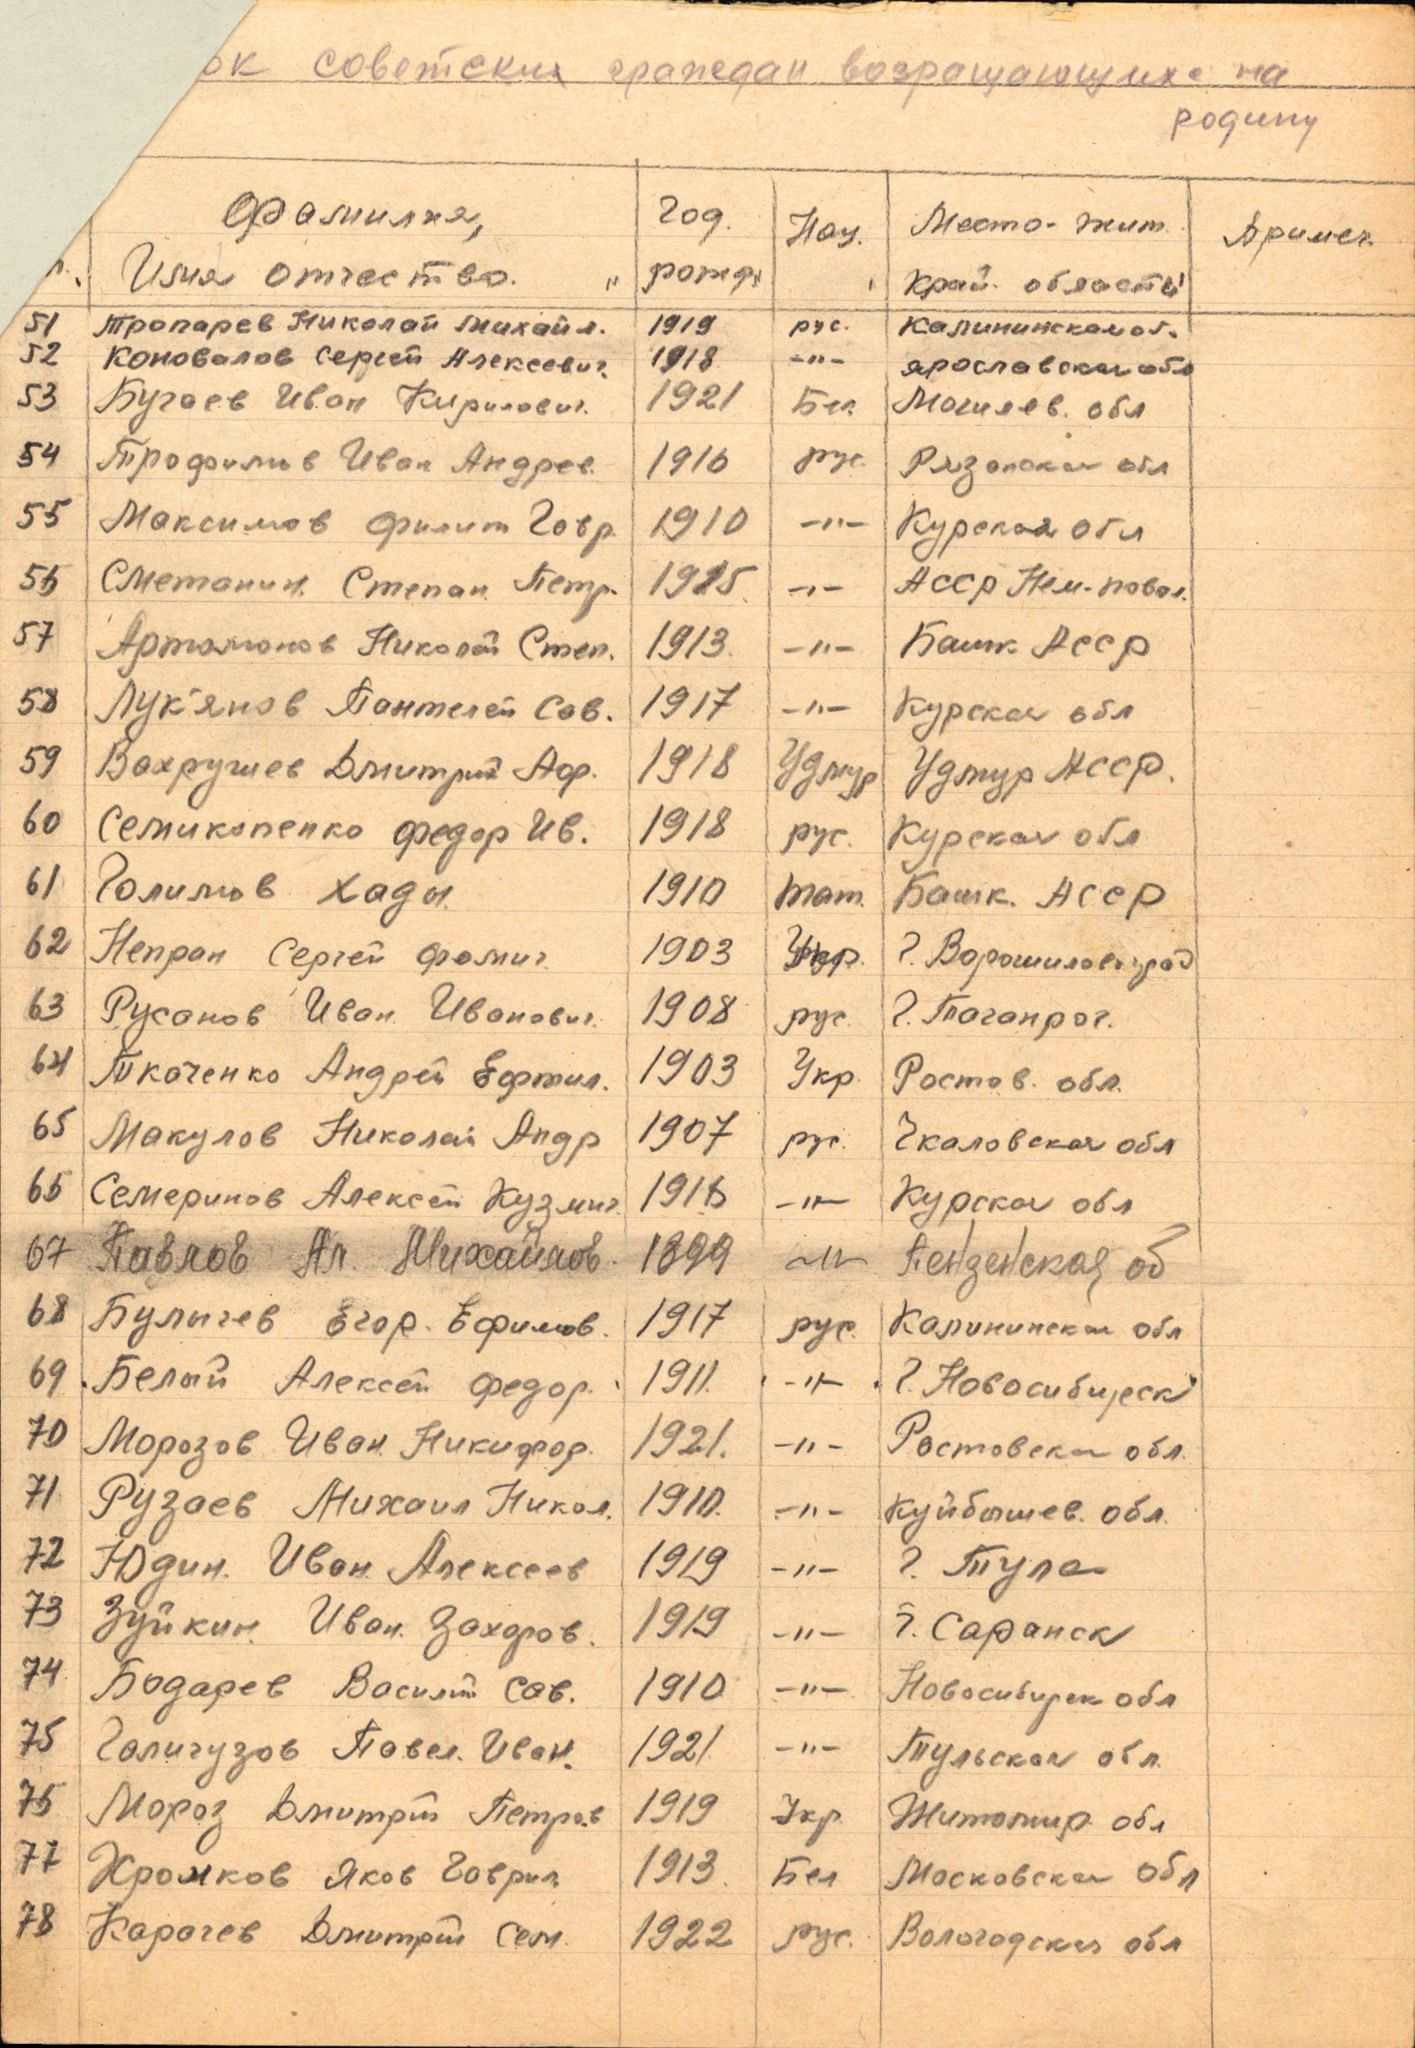 ок советских граждан возращающихс на
родину
Фамилия, Год. Нац. Место-жит. Примеч.
Имя отчество. " рожд" край. область
51 Тропарев Николай Михайл. 1919 рус. Калининскам об.
52 Коновалов Сергей Алексеевич. 1918 -"- Ярославская обл
53 Бугаев Иван Кирилович. 1921 Бел. Могилев. обл
54 Трофимов Иван Андрев. 1916 рус. Рязанская обл
55 Максимов Филип Гавр. 1910 -"- Курская обл
56 Сметанин Степан Петр. 1915 -"- АССР Нем-повол.
57 Артамонов Николай Степ. 1913. -"- Башк АССР
58 Лук'янов Пантелей Сав. 1917 -"- Курская обл
59 Вахрушев Дмитрий Аф. 1918 Удмур Удмур АССР.
60 Семикопенко Федор Ив. 1918 рус. Курская обл
61 Галимов Хады 1910 тат. Башк. АССР
62 Непран Сергей Фомич. 1903 Укр. г. Ворошиловград
63 Русанов Иван Иванович. 1908 рус. г. Таганрог.
64 Ткаченко Андрей Ефтил. 1903 Укр. Ростов. обл.
65 Макулов Николай Андр 1907 рус. Чкаловская обл
66 Семеринов Алексей Кузмич. 1916 -"- Курская обл
67 Павлов Ал. Михайлов. 1899 -"- Пензенская об
68 Булычев Егор. Ефимов. 1917 рус. Калининская обл
69 Белый Алексей Федор. 1911. -"- г. Новосибирск
70 Морозов Иван Никифор. 1921. -"- Ростовская обл.
71 Рузаев Михаил Никол. 1910. -"- Куйбышев. обл.
72 Юдин. Иван Алексеев 1919 -"- г. Тула
73 Зуйкин. Иван. Захаров. 1919 -"- г. Саранск
74 Бодарев Василий Сав. 1910 -"- Новосибирск обл
75 Галигузов Павел. Иван. 1921 -"- Тульская обл.
76 Мороз Дмитрий Петров 1919 Укр Житомир обл
77 Хромков Яков Гаврил 1913. Бел Московская обл
78 Карачев Дмитрий Сем. 1922 рус. Вологодская обл